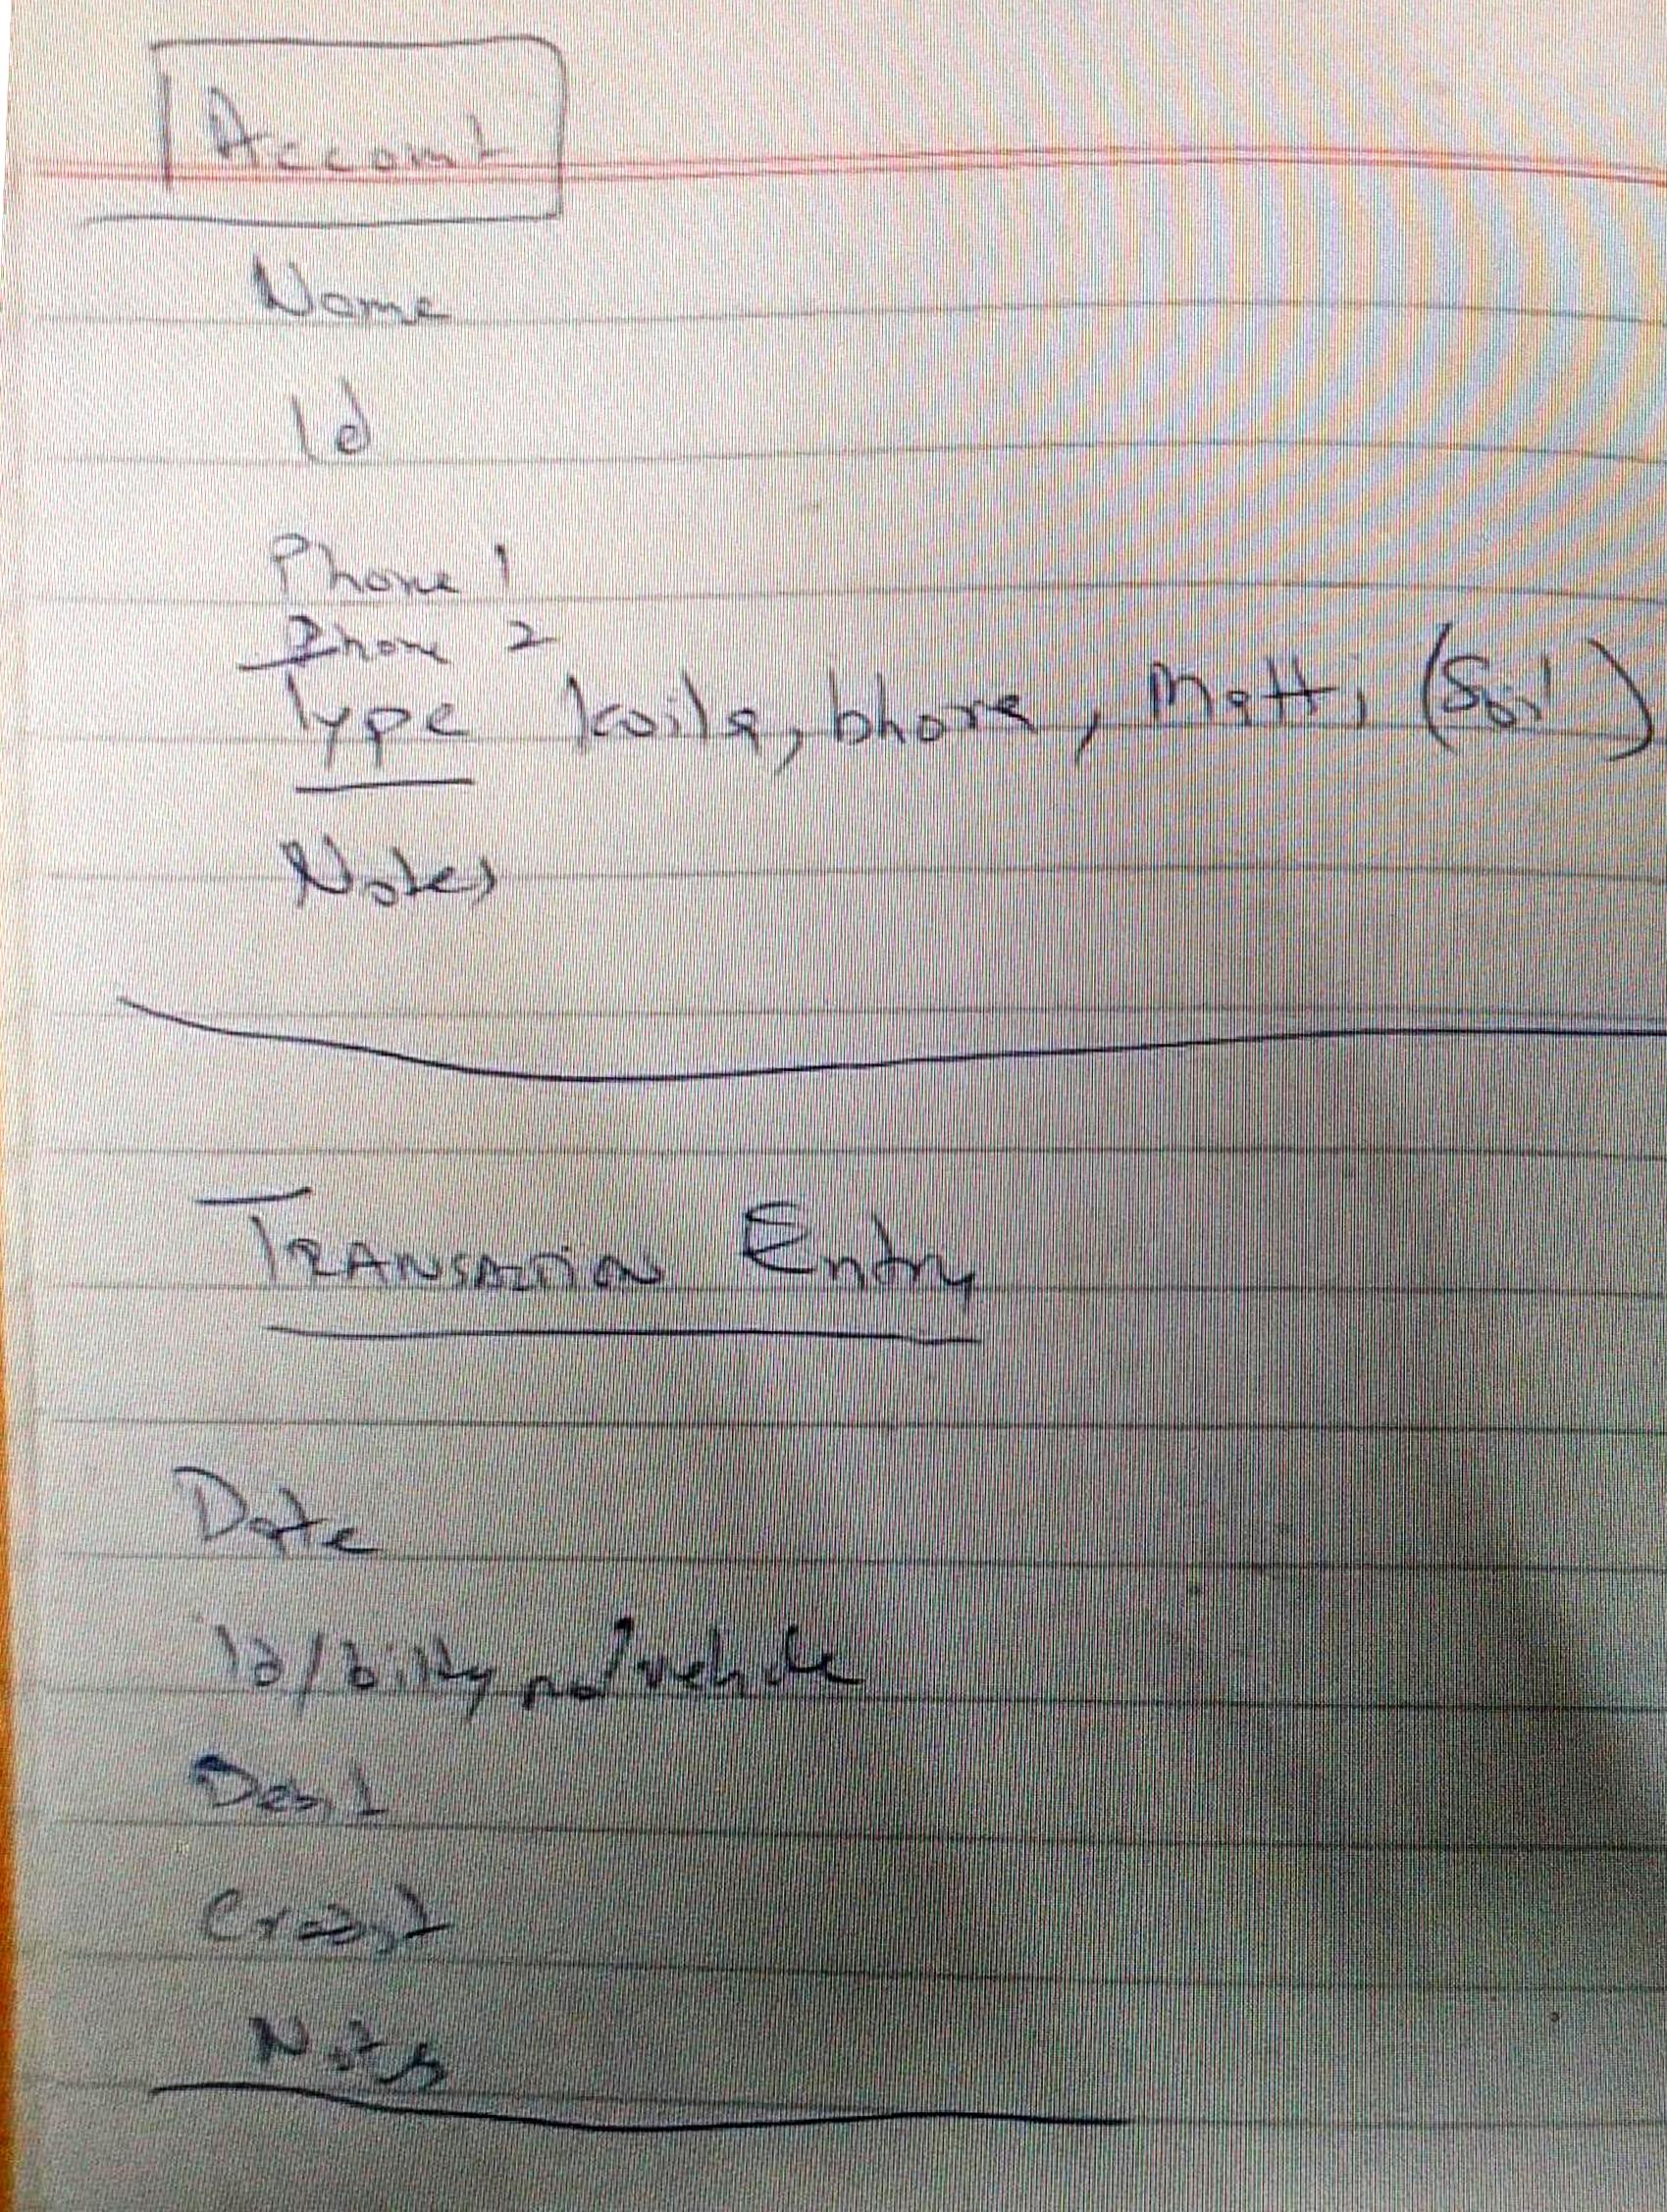 Account
Name
Id
Phone 1
Phone 2
Type koila, bhora, Matti (Soil)
Notes
TRANSACTION Entry
Date
id/bilty no/vehicle
Debit
Credit
Notes